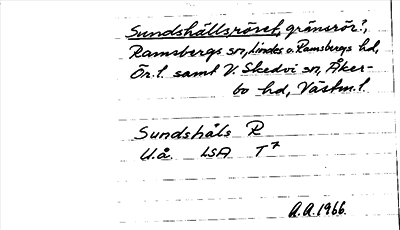 Sundshällsröset, gränsrör?,
Ramsbergs sn, Lindes o. Ramsbergs hd,
Ör. l. samt V. Skedvi sn, Åker-
bo hd, Västm. l.
Sundshåls R
U.å. LSA T7
A.A. 1966.